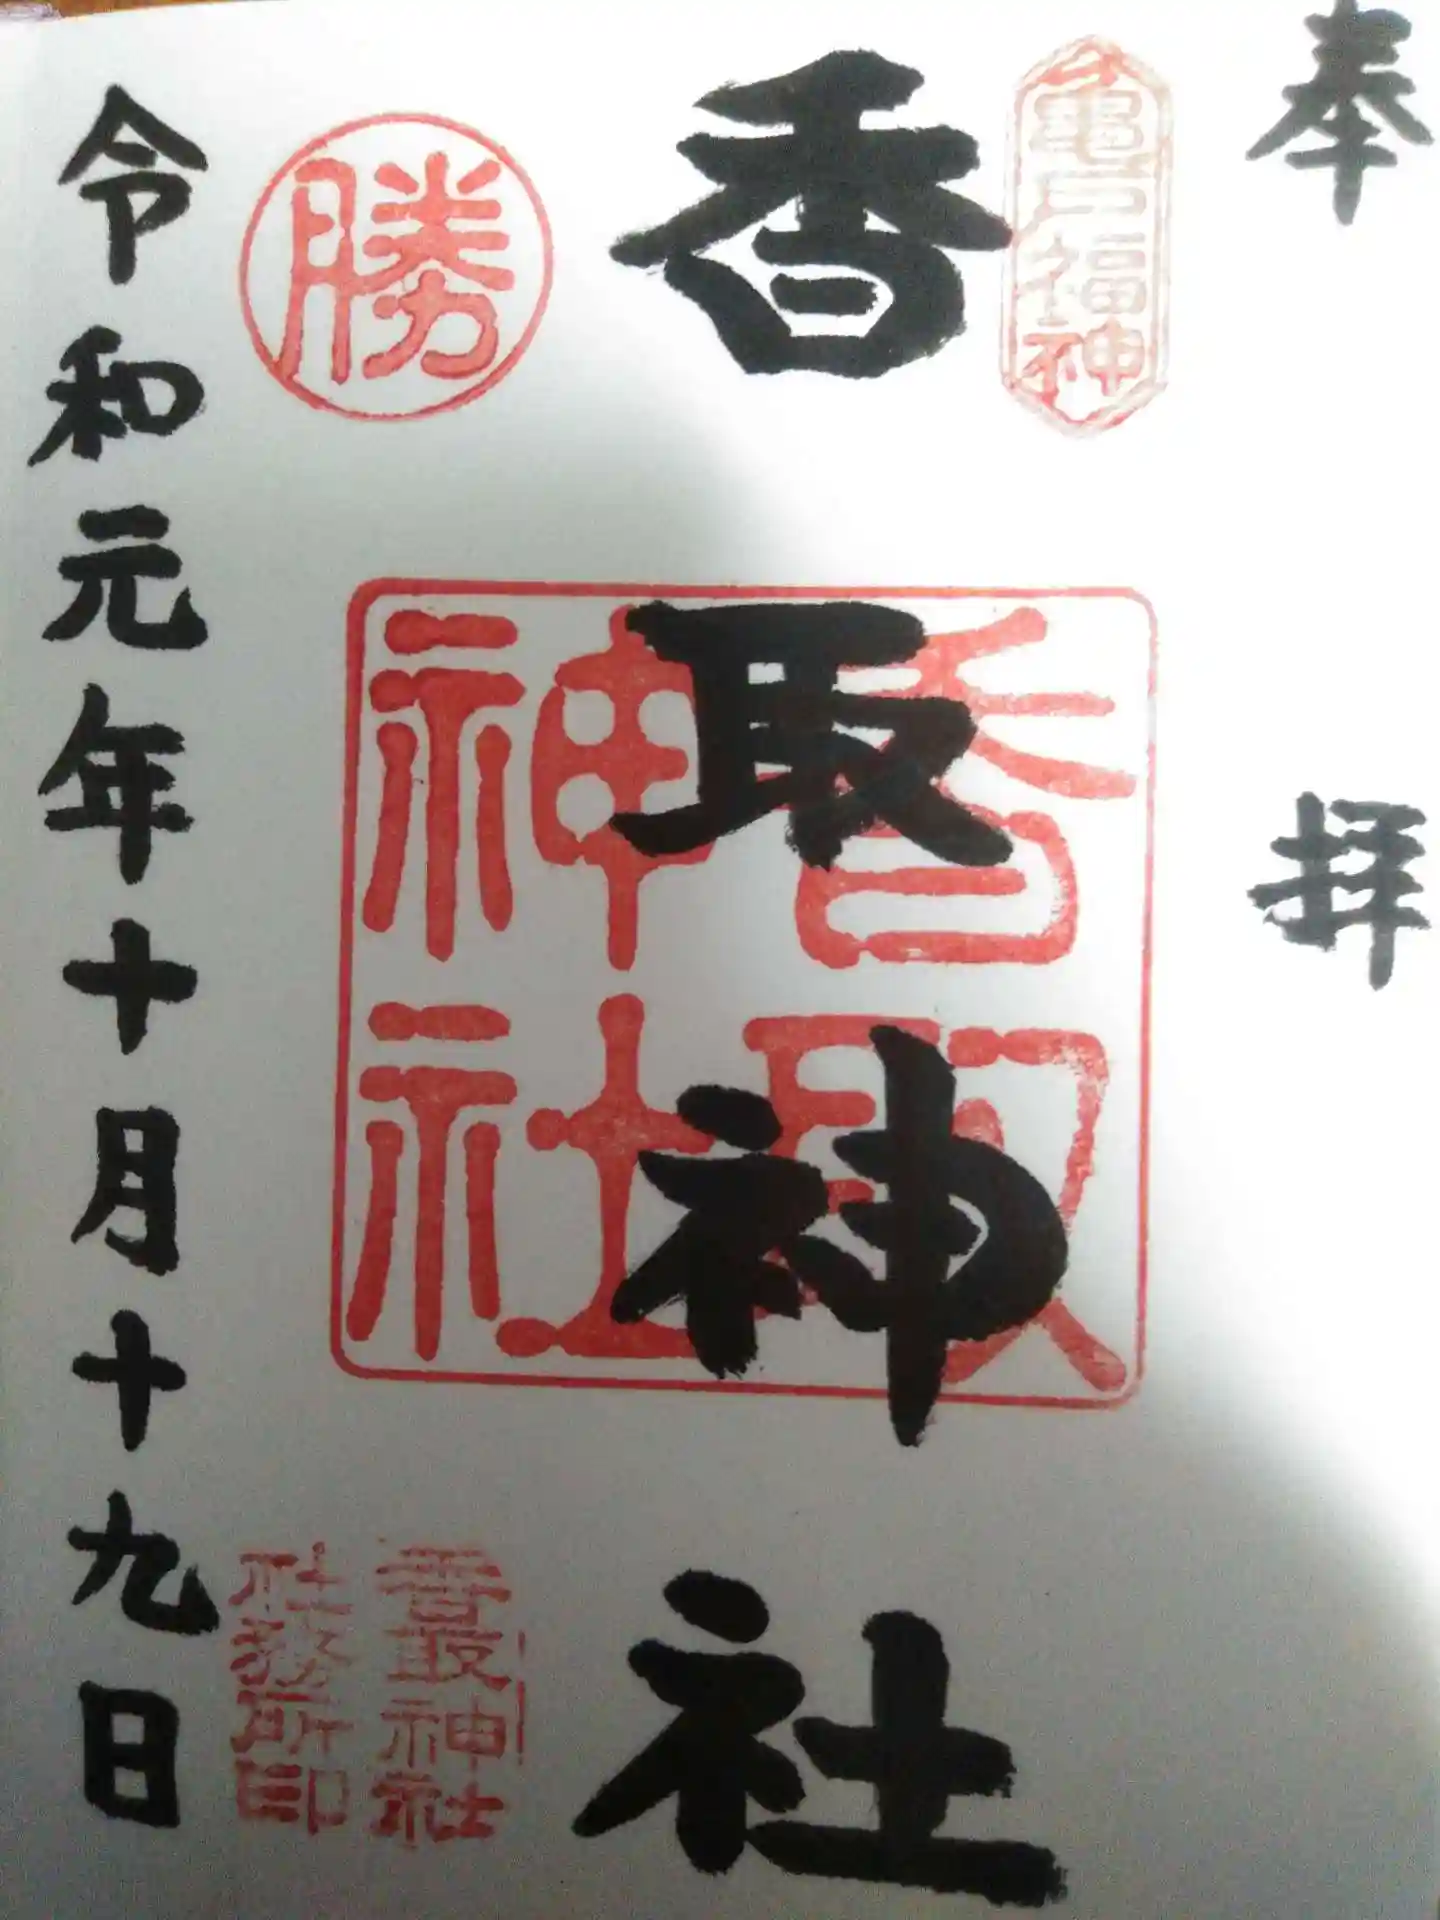 奉拝
亀戸福神
香取神社
香取神社
勝
香取神社
社務所印
令和元年十月十九日